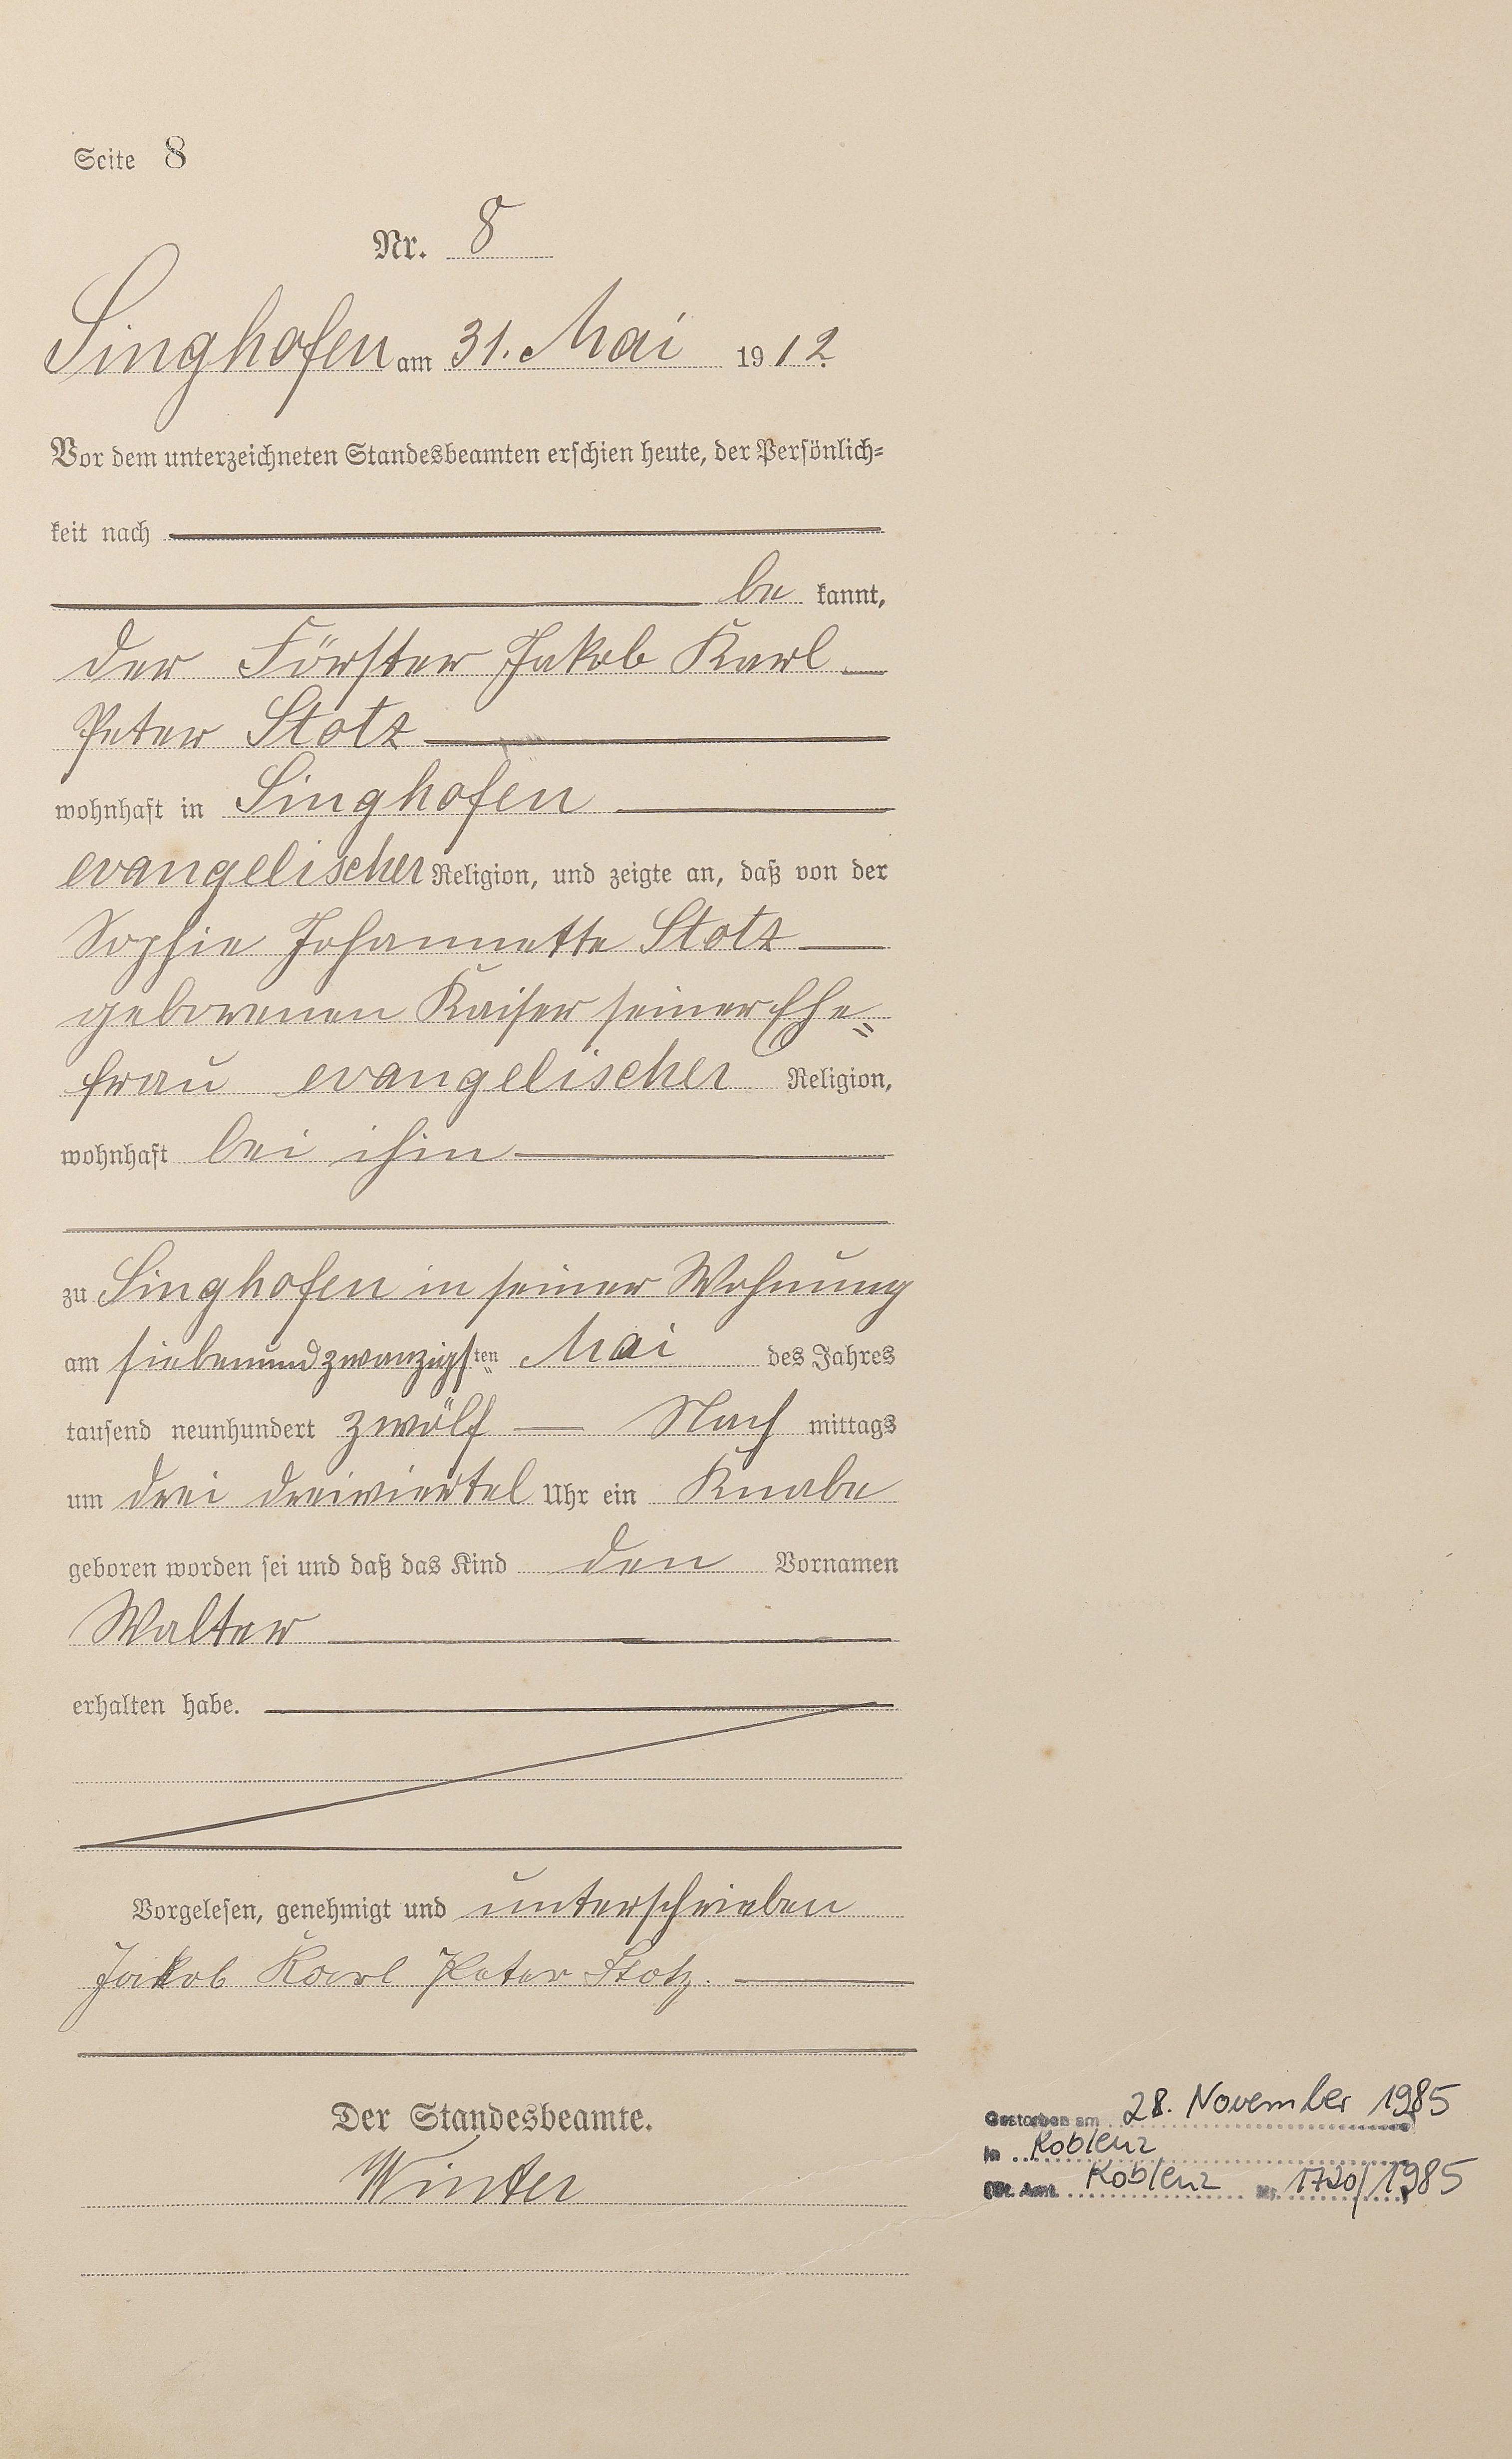 Seite 8
Nr. 8
Singhofen am 31. Mai 1912.
Vor dem unterzeichneten Standesbeamten erschien heute, der Persönlich=
keit nach
be kannt,
der Förster Jakob Karl
Peter Stotz
wohnhaft in Singhofen
evangelischer Religion, und zeigte an, daß von der
Sophie Johannette Stotz
geborenen Kaiser seiner Ehe=
frau evangelischer Religion,
wohnhaft bei ihm
zu Singhofen in seiner Wohnung
am siebenundzwanzigsten Mai des Jahres
tausend neunhundert zwölf Nach mittags
um drei dreiviertel Uhr ein Knabe
geboren worden sei und daß das Kind den Vornamen
Walter
erhalten habe.
Vorgelesen, genehmigt und unterschrieben
Jakob Karl Peter Stotz.
Der Standesbeamte.
Winter
Gestorben am 28. November 1985
in Koblenz
(St. Amt. Koblenz Nr. 1720/1985)